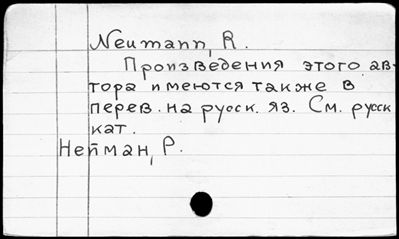 Neumann, R.
Произведения этого ав-
тора имеются также в
перев. на русск. яз. См. русск
кат.
Нейман, Р.